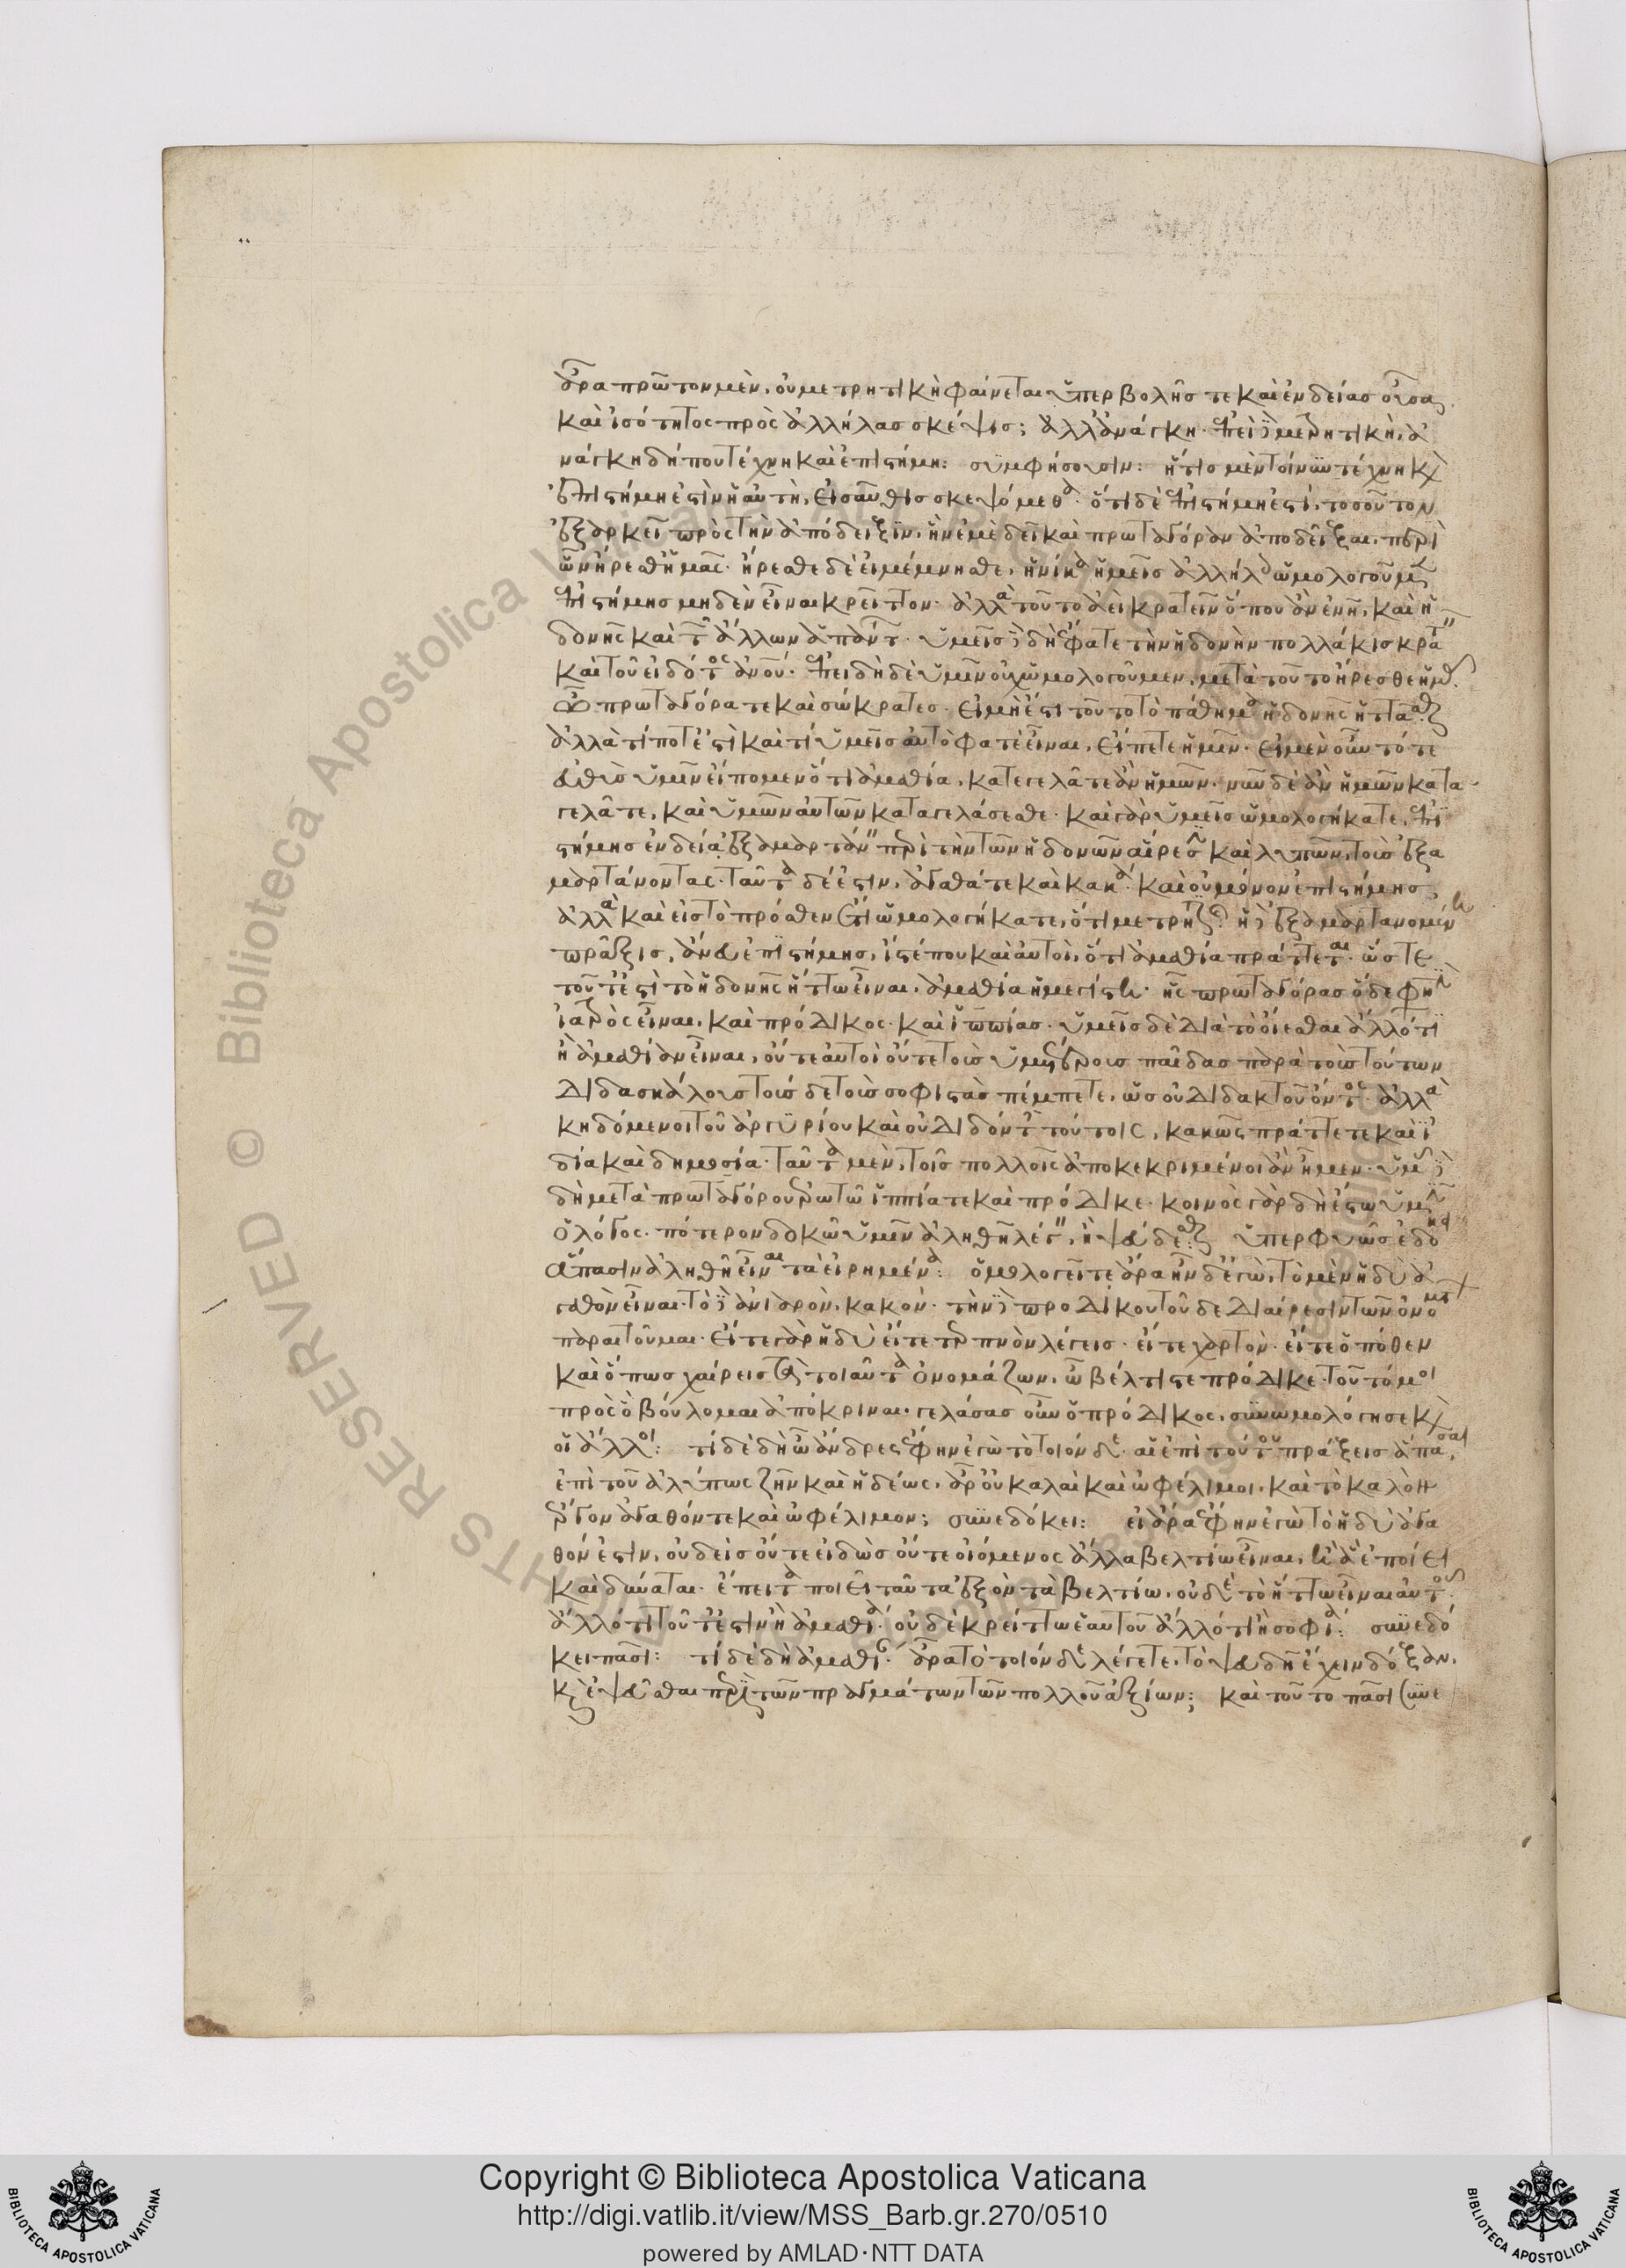 ἆρα πρῶτον μὲν, οὐ μετρητικὴ φαίνεται ὑπερβολῆς τε καὶ ἐνδείας οὖσα
καὶ ἰσότητος πρὸς ἀλλήλας σκέψις; ἀλλ' ἀνάγκη. ἐπεὶ δὲ μετρητικὴ, ἀ
νάγκη δήπου τέχνη καὶ ἐπιστήμη: συμφήσουσιν: ἥτις μὲν τοίνυν τέχνη καὶ
ἐπιστήμη ἐστὶν ἡ αὐτὴ, εἰσαῦθις σκεψόμεθα. ὅτι δὲ ἐπιστήμη ἐστὶ, τοσοῦτον
ἐξαρκεῖ πρὸς τὴν ἀπόδειξιν, ἣν ἐμὲ δεῖ καὶ πρωταγόραν ἀποδεῖξαι, περὶ
ὧν ἤρεσθ' ἡμᾶς. ἤρεσθε δὲ εἰ μέμνησθε, ἡνίκα ἡμεῖς ἀλλήλοις ὡμολογοῦμεν
ἐπιστήμης μηδὲν εἶναι κρεῖττον. ἀλλὰ τοῦτο ἀεὶ κρατεῖν ὅπου ἂν ἐνῇ, καὶ ἡ
δονῆς καὶ τῶν ἄλλων ἁπάντων. ὑμεῖς δὲ δὴ ἔφατε τὴν ἡδονὴν πολλάκις κρατεῖν
καὶ τοῦ εἰδότος ἀνου. ἐπειδὴ δὲ ὑμῖν οὐχ ὡμολογοῦμεν, μετὰ τοῦτο ἤρεσθε ἡμᾶς.
ὦ πρωταγόρα τε καὶ σώκρατες. εἰ μὴ ἔστι τοῦτο τὸ πάθημα ἡδονῆς ἡττᾶσθαι
ἀλλὰ τί ποτ' ἐστὶ καὶ τί ὑμεῖς αὐτό φατε εἶναι, εἴπετε ἡμῖν. εἰ μὲν οὖν τότε
εὐθὺς ὑμῖν εἴπομεν ὅτι ἀμαθία, κατεγελᾶτε ἂν ἡμῶν. νῦν δὲ ἂν ἡμῶν κατα
γελᾶτε, καὶ ὑμῶν αὐτῶν καταγελάσεσθε. καὶ γὰρ ὑμεῖς ὡμολογήκατε, ἐπι
στήμης ἐνδείᾳ ἐξαμαρτάνειν περὶ τὴν τῶν ἡδονῶν αἵρεσιν καὶ λυπῶν, τοὺς ἐξα
μαρτάνοντας. ταῦτα δέ ἐστιν, ἀγαθά τε καὶ κακά. καὶ οὐ μόνον ἐπιστήμης,
ἀλλὰ καὶ εἰς τὸ πρόσθεν ἔτι ὡμολογήκατε, ὅτι μετρητικῆς. ἡ δὲ ἐξαμαρτανομένη
πρᾶξις, ἄνευ ἐπιστήμης, ἴστέ που καὶ αὐτοὶ, ὅτι ἀμαθία πράττεται. ὥστε
τοῦτ' ἐστὶ τὸ ἡδονῆς ἥττω εἶναι, ἀμαθία ἡ μεγίστη. ἧς πρωταγόρας ὅδε φησὶν
ἰατρὸς εἶναι, καὶ πρόδικος. καὶ ἱππίας. ὑμεῖς δὲ διὰ τὸ οἴεσθαι ἄλλό τι
ἢ ἀμαθίαν εἶναι, οὔτε αὐτοὶ οὔτε τοὺς ὑμετέρους παῖδας παρὰ τοὺς τούτων
διδασκάλους τούσδε τοὺς σοφιστὰς πέμπετε, ὡς οὐ διδακτοῦ ὄντος. ἀλλὰ
κηδόμενοι τοῦ ἀργυρίου καὶ οὐ διδόντες τούτοις, κακῶς πράττετε καὶ ἰ
δία καὶ δημοσία. ταῦτα μὲν, τοῖς πολλοῖς ἀποκεκριμένοι ἂν ἦμεν. ὑμᾶς δὲ
δὴ μετὰ πρωταγόρου ἐρωτῶ ἱππία τε καὶ πρόδικε. κοινὸς γὰρ δὴ ἔστω ὑμῖν
ὁ λόγος. πότερον δοκῶ ὑμῖν ἀληθῆ λέγειν, ἢ ψεύδεσθαι: ὑπερφυῶς ἐδόκει
ἅπασιν ἀληθῆ εἶναι τὰ εἰρημένα: ὁμολογεῖτε ἄρα ἦν δ' ἐγὼ, τὸ μὲν ἡδὺ ἀ
γαθὸν εἶναι. τὸ δὲ ἀνιαρὸν, κακόν. τὴν δὲ προδίκου τοῦδε διαίρεσιν τῶν ὀνομάτων
παραιτοῦμαι. εἴτε γὰρ ἡδὺ εἴτε τερπνὸν λέγεις. εἴτε χαρτὸν. εἴτε ὁπόθεν
καὶ ὅπως χαίρεις τὰ τοιαῦτα ὀνομάζων, ὦ βέλτιστε πρόδικε. τοῦτό μοι
πρὸς ὃ βούλομαι ἀπόκριναι. γελάσας οὖν ὁ πρόδικος, συνωμολόγησε καὶ
οἱ ἄλλοι: τί δὲ δὴ ὦ ἄνδρες ἔφην ἐγὼ τὸ τοιόνδε. αἱ ἐπὶ τούτου πράξεις ἅπασαι,
ἐπὶ τοῦ ἀλύπως ζῆν καὶ ἡδέως, ἆρ' οὐ καλαὶ καὶ ὠφέλιμοι. καὶ τὸ καλὸν
ἔργον ἀγαθόν τε καὶ ὠφέλιμον; συνεδόκει: εἰ ἄρα ἔφην ἐγὼ τὸ ἡδὺ ἀγα
θόν ἐστιν, οὐδεὶς οὔτε εἰδὼς οὔτε οἰόμενος ἄλλα βελτίω εἶναι, ἢ ἃ ἐποίει
καὶ δύναται. ἔπειτα ποιεῖ ταῦτα ἐξὸν τὰ βελτίω. οὐδὲ τὸ ἥττω εἶναι αὐτοῦ.
ἄλλό τι τοῦτ' ἐστὶν ἢ ἀμαθία. οὐδὲ κρείττω ἑαυτοῦ ἄλλό τι ἢ σοφία: συνεδό
κει πᾶσι: τί δὲ δὴ ἀμαθίαν. ἆρα τὸ τοιόνδε λέγετε, τὸ ψευδῆ ἔχειν δόξαν,
καὶ ἐψεῦσθαι περὶ τῶν πραγμάτων τῶν πολλοῦ ἀξίων; καὶ τοῦτο πᾶσι συνε
Copyright © Biblioteca Apostolica Vaticana
http://digi.vatlib.it/view/MSS_Barb.gr.270/0510
powered by AMLAD·NTT DATA